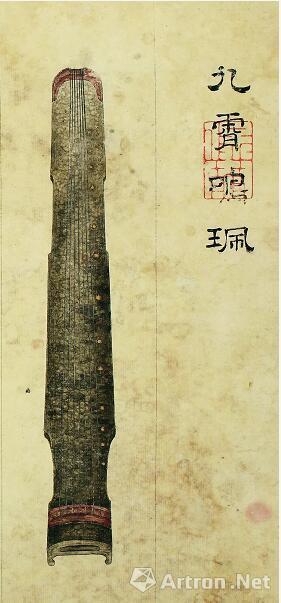 九霄鳴珮
Artron.Net